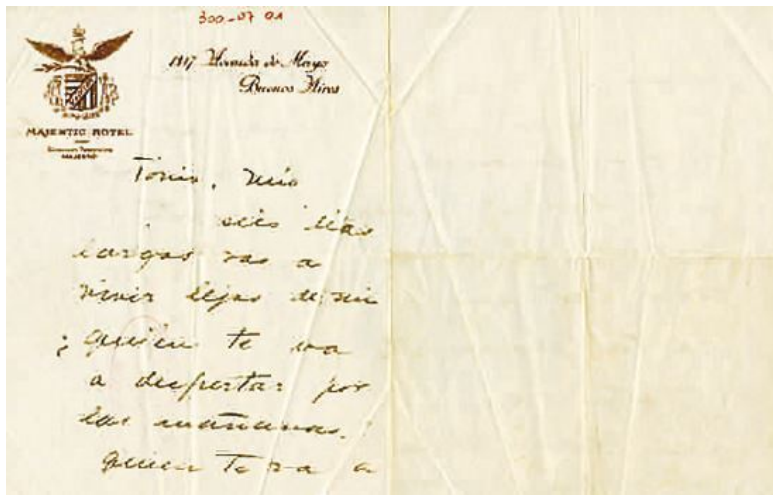 300-07 01
1317 Avenida de Mayo
Buenos Aires
MAJESTIC HOTEL
Tonio, mio
seis dias
largos vas a
vivir lejos de mi
¿quién te va
a despertar por
las mañanas.
quien te va a